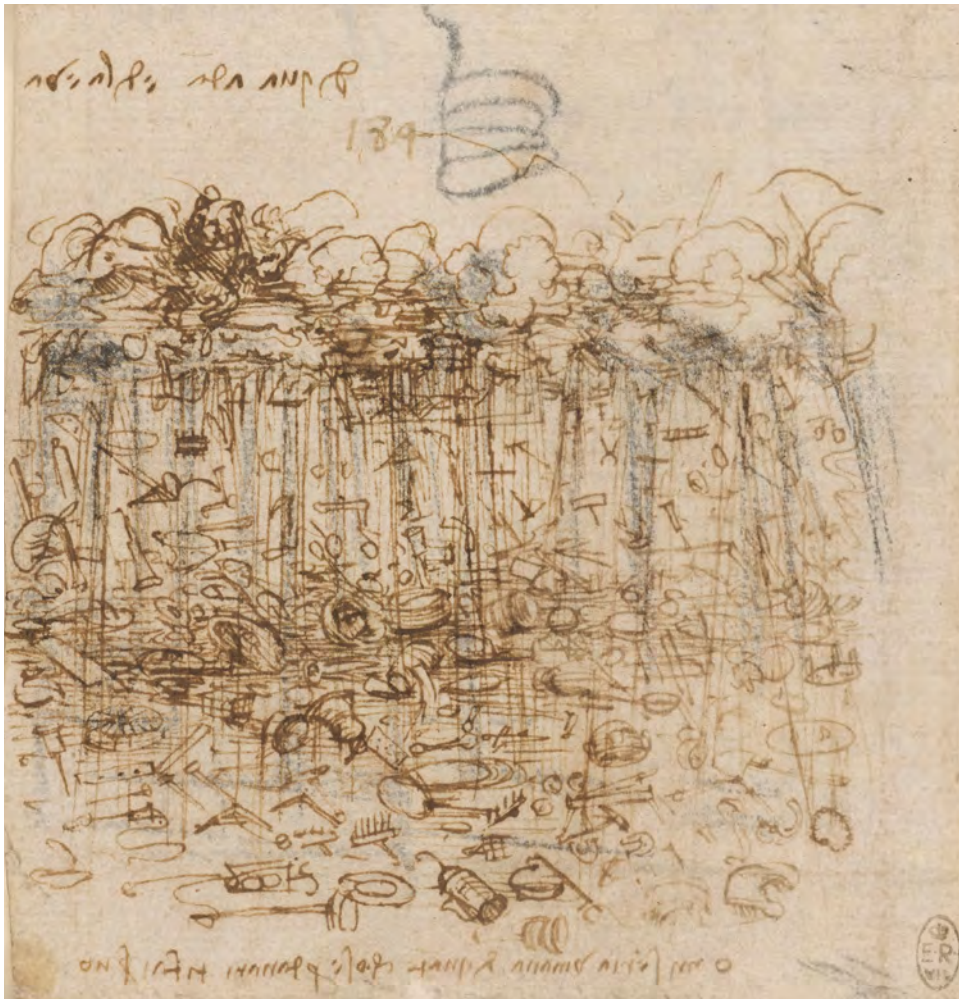 di qua adam e di la eva
o miseria umana di quante chose per danari ti fai servo
E R
VII